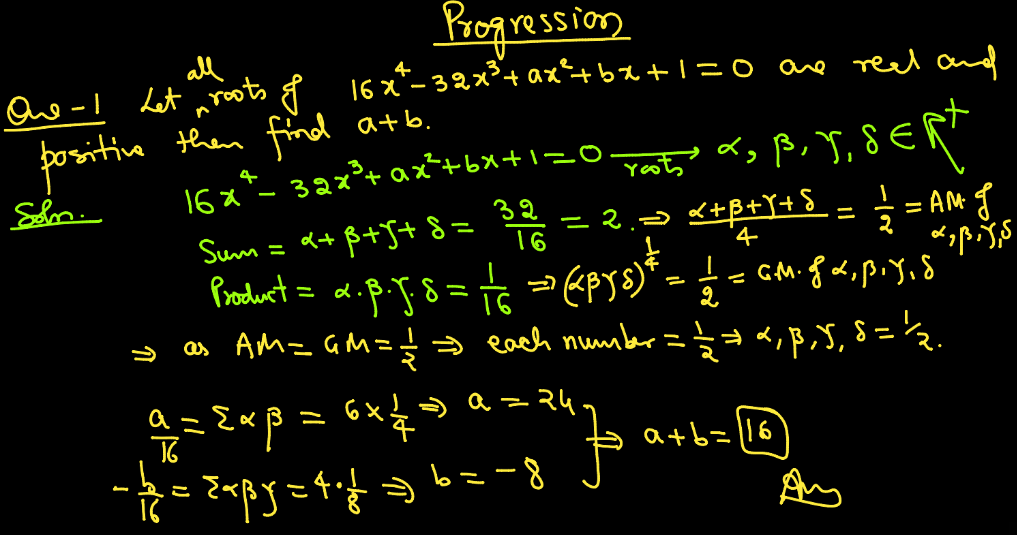 Progression
Que-1 Let all roots of 16x⁴-32x³+ax²+bx+1=0 are real and
positive then find a+b.
Soln. 16x⁴-32x³+ax²+bx+1=0 roots→ α, β, γ, δ ∈ R⁺
Sum = α+β+γ+δ = 32/16 = 2. ⇒ (α+β+γ+δ)/4 = 1/2 = AM. of α,β,γ,δ
Product = α.β.γ.δ = 1/16 ⇒ (αβγδ)^1/4 = 1/2 = GM. of α,β,γ,δ
⇒ as AM = GM = 1/2 ⇒ each number = 1/2 ⇒ α,β,γ,δ = 1/2.
a/16 = Σαβ = 6×1/4 ⇒ a = 24
-b/16 = Σαβγ = 4·1/8 ⇒ b = -8
⇒ a+b = 16
Ans